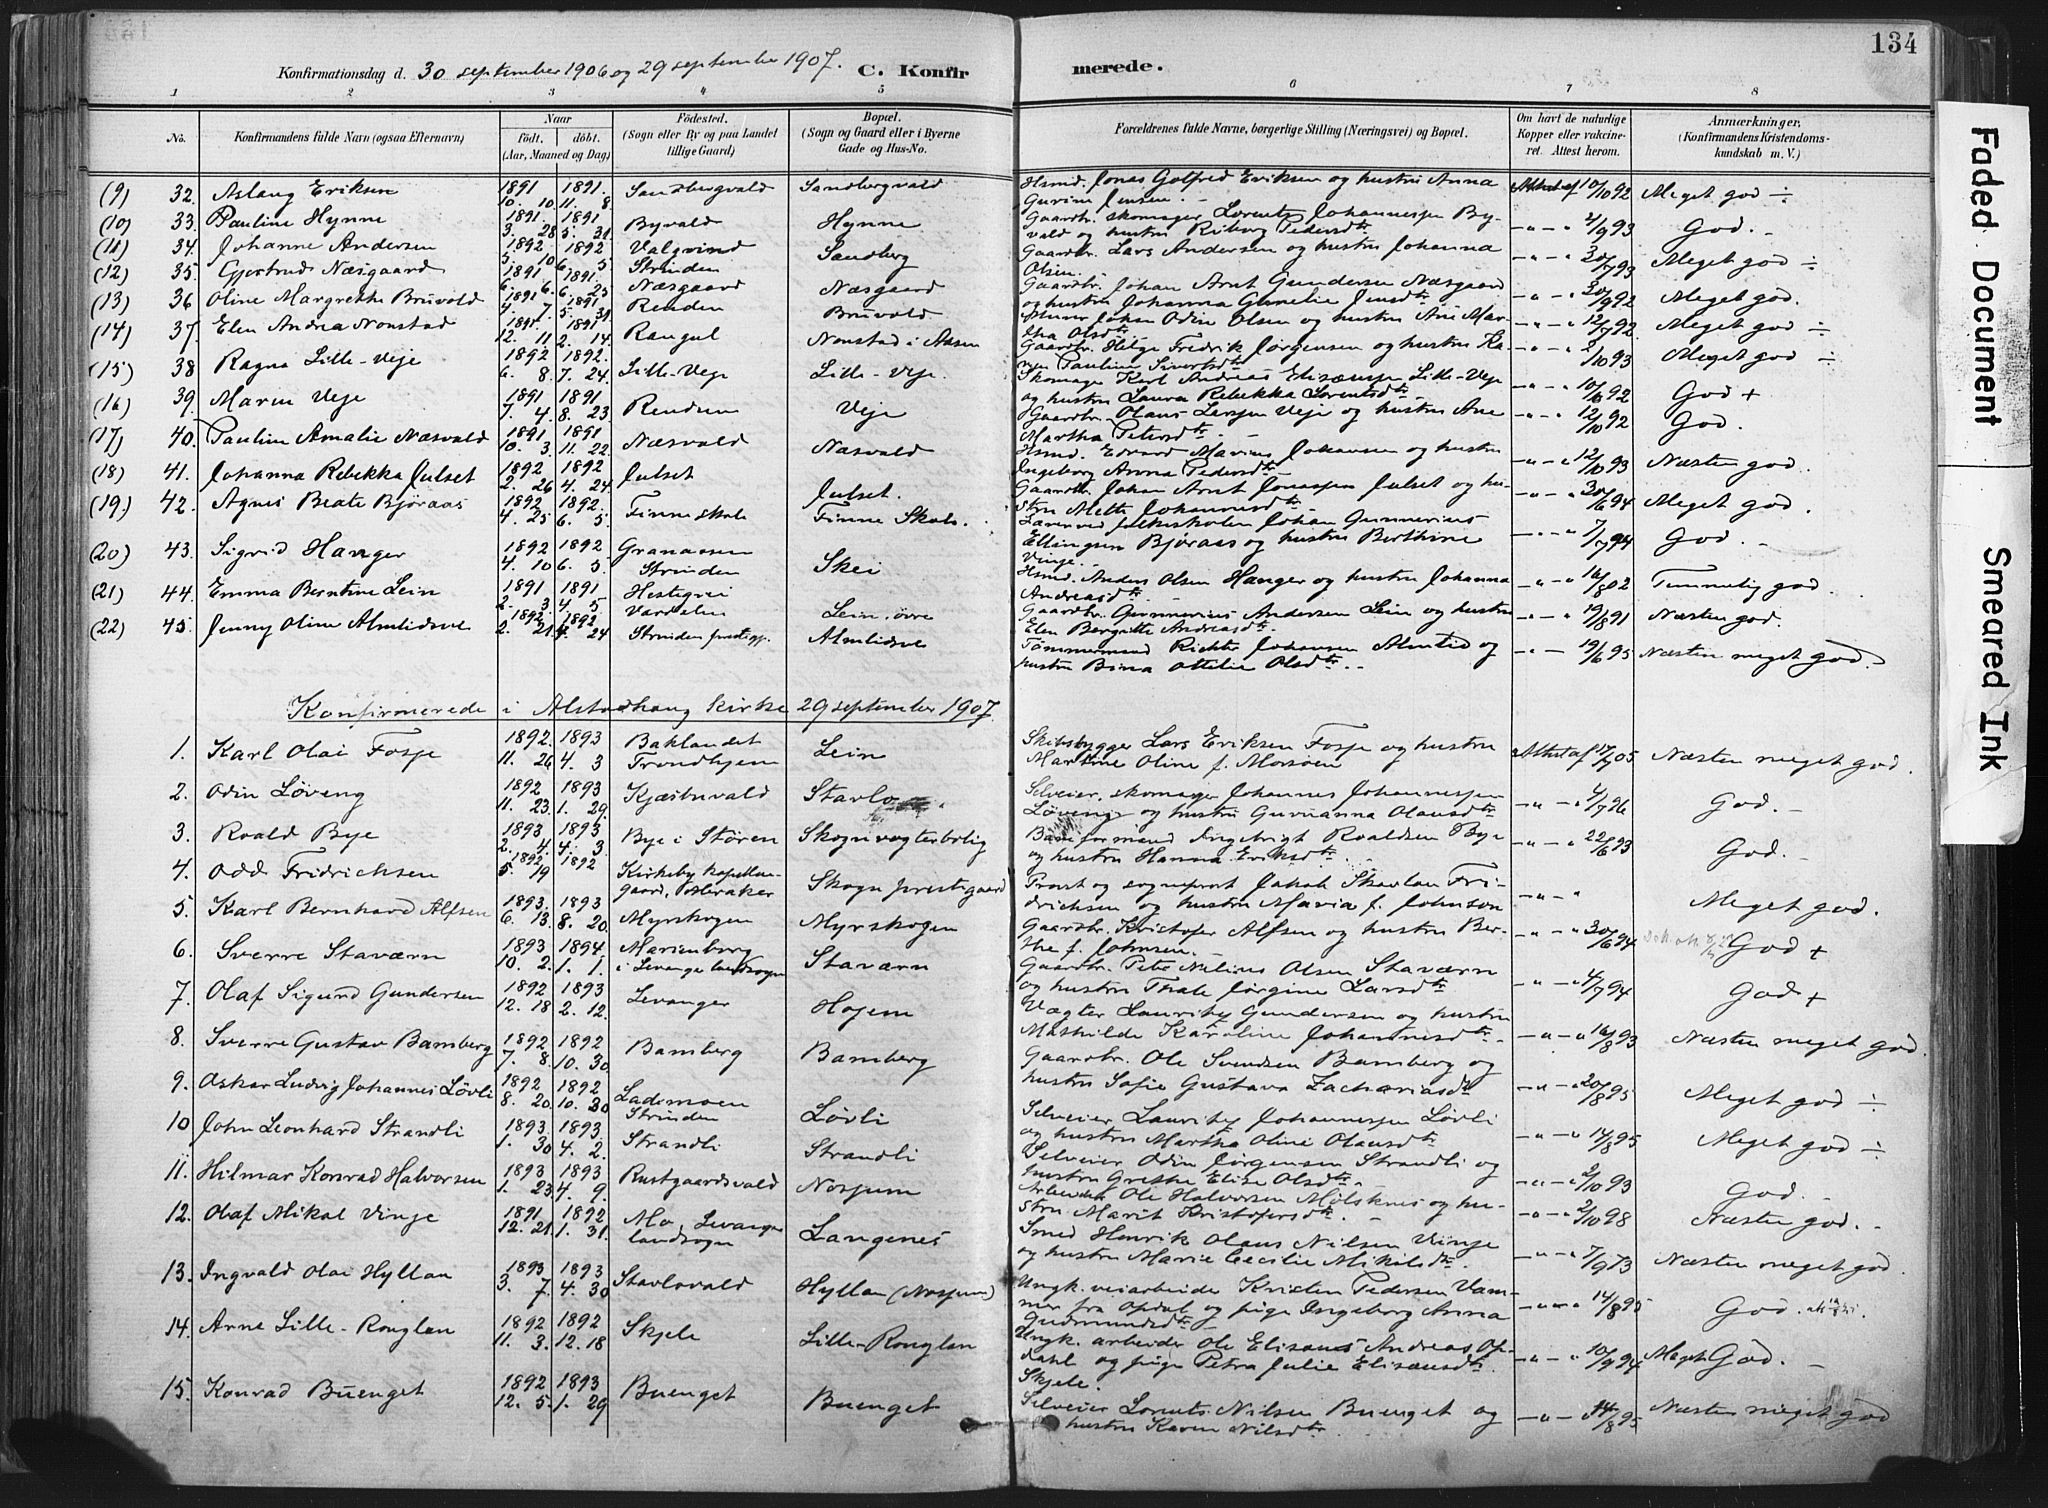 134
Konfirmationsdag d. 30 september 1906 og 29 september 1907. C. Konfirmerede.
1 2 3 4 5 6 7 8
No. Konfirmandens fulde Navn (ogsaa Efternavn) Naar født, døbt. (Aar, Maaned og Dag) Fødested. (Sogn eller By og paa Landet tillige Gaard) Bopæl. (Sogn og Gaard eller i Byerne Gade og Hus-No. Forældrenes fulde Navne, borgerlige Stilling (Næringsvei) og Bopæl. Om havt de naturlige Kopper eller vakcineret. Attest herom. Anmærkninger. (Konfirmandens Kristendomskundskab m. V.)
(9) 32. Aslaug Eriksen 1891 10. 10 1891. 11. 8 Sandbergvald Sandbergvald Hsmd. Jonas Golfred Eriksen og hustru Anna Gurine Jensen. Attest af 10/10 92 Meget god ÷
(10) 33. Pauline Hynne 1891 3. 28 1891. 5. 31 Byvald Hynne Gaardbr. skomager Lorents Johannesen Byvald og hustru Riborg Pedersdtr 2/9 93 God.
(11) 34. Johanne Andersen 1892 5. 10 1892 6. 5 Valgvind Sandberg Gaardbr. Lars Andersen og hustru Johanna Olsen. 30/7 93 Meget god ÷
(12) 35. Gjertrud Næsgaard 1891 6. 6. 1891. 6. 25 Strinden Næsgaard Næsgaard Gaardbr. Johan Arnt Gundersen Næsgaard og hustru Johanna Cornelia Jensdtr 30/9 92 Meget god.
(13) 36 Oline Margrethe Bruvold 1891 4. 7 1891 5. 31 Renden Bruvold Murer Johan Odin Olsen og hustru Ane Martha Olsdtr 12/7 92 Meget god ÷
(14) 37. Elen Andrea Nonstad 1891. 12. 11 1891 2. 14. Rangul Nonstad i Aasen Gaardbr. Helge Fredrik Jørgensen og hustru Karen Pauline Sivertsdtr /10 93 Meget god ÷
(15) 38 Ragna Lille-Veje 1892 6. 8. 1892. 7. 24. Lille-Veje Lille-Veje. Skomager Karl Andreas Elisæusen Lille-Veje og hustru Laura Rebekka Lorentsdtr 10/10 92 God +
(16) 39. Maren Veje 1891 7. 4. 1891 8. 23 Rendsen Veje Gaardbr. Olaus Larsen Veje og hustru Ane Martha Petersdtr 12/10 92 God.
(17) 40. Pauline Amalie Næsvald 1891 10. 3. 1891 11. 22 Næsvald Næsvald Hsmd. Edvard Marius Johansen og hustru Ingeborg Anna Pedersdtr 12/10 93 Næsten god.
(18) 41. Johanna Rebekka Julset 1892 2. 26 1892 4. 24 Julset Julset. Gaardbr. Johan Arnt Jonassen Julset og hustru Mette Johannesdtr 30/6 94 Meget god.
(19) 42. Agnes Beate Bjøraas 1892 4. 25 1892 6. 5. Finne skole Finne Skole. Lærer ved folkeskolen Johan Gunnerius Ellingsen Bjøraas og hustru Berthine Vinge. 7/7 94 God.
(20) 43. Sigrid Hanger 1892 4. 10 1892 6. 5. Granaasen Strinden Skei Hsmd. Anders Olsen Hanger og hustru Johanna Andreasdtr 16/8 02 Temmelig god
(21) 44. Emma Berntine Lein 1891 2. 3. 1891 4. 5. Hestegrei Vardalen Lein, øvre Gaardbr. Gunnerius Andersen Lein og hustru Elen Bergitte Andreasdtr 19/8 91 Næsten god.
(22) 45. Jenny Oline Almlidsve 1892 2. 21 1892 4. 24 Strinden prestegj. Almlidsve Tømmermand Richter Johansen Almlid og hustru Bina Ottilie Olsdtr 19/6 95 Næsten meget god.
Konfirmerede i Alstadhaug kirke 29 september 1907.
1. Karl Olai Fosje 1892. 11. 26 1893 4. 3 Baklandet Trondhjem Lein Skibsbygger Lars Eriksen Fosje og hustru Martine Oline f. Morsøen Attest af 17/7 05 Næsten meget god.
2. Odin Løveng 1892 11. 23. 1893 1. 29. Kjæsbuvald Stavlo Selveier, skomager Johannes Johannesen Løveng og hustru Guruanna Olausdtr 4/7 96 God.
3. Roald Bye 1893. 2. 4. 1893 4. 3 Bye i Støren Skogn vogterbolig Baneformand Ingebrigt Roaldsen Bye og hustru Hanna Eriksdtr 22/6 93 God.
4. Odd Fridrichsen 1892. 5. 19 1892 Kirkeby kapellangaard, Østeraker Skogn prestegaard Provst og sogneprest Jakob Skavlan Fridrichsen og hustru Maria f. Johnson Meget god.
5. Karl Bernhard Alfsen 1893. 6. 13. 1893 8. 20. Myrskogen Myrskogen Gaardbr. Kristofer Alfsen og hustru Berthe f. Johnsen. 30/6 94 God +
6. Sverre Staværn 1893 10. 2. 1894 1. 1. Marienborg i Levanger landsogn Staværn Gaardbr. Peter Nilius Olsen Staværn og hustru Thale Jørgine Larsdtr 4/7 94 God +
7. Olaf Sigurd Gundersen 1892 12. 18 1893 2. 12. Levanger Hojem Vægter Lauritz Gundersen og hustru Mathilde Karoline Johannesdtr 16/8 93 Næsten meget god.
8. Sverre Gustav Bamberg 1892 7. 8. 1892 10. 30 Bamberg Bamberg Gaardbr. Ole Svendsen Bamberg og hustru Sofie Gustava Zachariasdtr 20/8 95 Meget god ÷
9. Oskar Ludvig Johannes Løvli 1892 8. 20. 1892 10. 30 Lademoen Strinden Løvli Selveier Lauritz Johannesen Løvli og hustru Martha Oline Olausdtr 14/8 95 Meget god ÷
10 John Leonhard Strandli 1893 1. 30 1893 4. 2. Strandli Strandli Selveier Odin Jørgensen Strandli og hustru Grethe Elise Olsdtr 2/10 93 God.
11. Hilmar Konrad Halvorsen 1893 1. 23 1893 4. 9. Rustgaardsvald Nossum Arbeider Ole Halvorsen Mølsknes og hustru Marit Kristofersdtr 2/10 98 Næsten god.
12. Olaf Mikal Vinge 1891 12. 21 1892 1. 31. Mo, Levanger landsogn Langenes Smed Henrik Olaus Nilsen Vinge og hustru Marie Cecilie Mikalsdtr 7/9 73 Næsten meget god.
13. Ingvald Olai Hyllan 1893 3. 7. 1893 4. 30 Stavlovald Hyllan (Nossum) Ungk. veiarbeider Kristen Pedersen Vammer fra Opdal og pige Ingeborg Anna Gudmundsdtr 14/8 95 God.
14. Arne Lille-Ronglan 1892 11. 3. 1892 12. 18 Skjele Lille-Ronglan Ungk. arbeider Ole Elisæus Andreas Opdahl og pige Petra Julie Elisæusdtr Skjele. 10/9 94 Meget God.
15. Konrad Buenget 1892 12. 5. 1893 1. 29 Buenget Buenget Selveier Lorents Nilsen Buenget og hustru Karen Nilsdtr 14/8 95 Næsten meget god
Faded Document
Smeared Ink